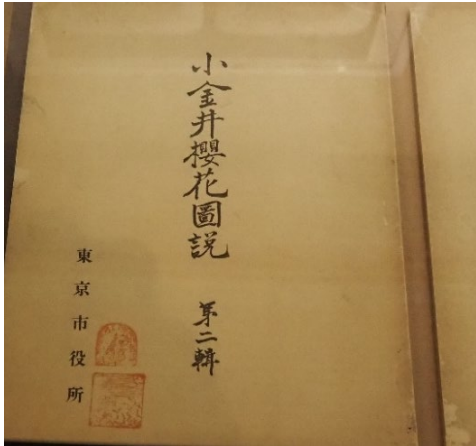 小金井櫻花圖説 第二輯
東京市役所